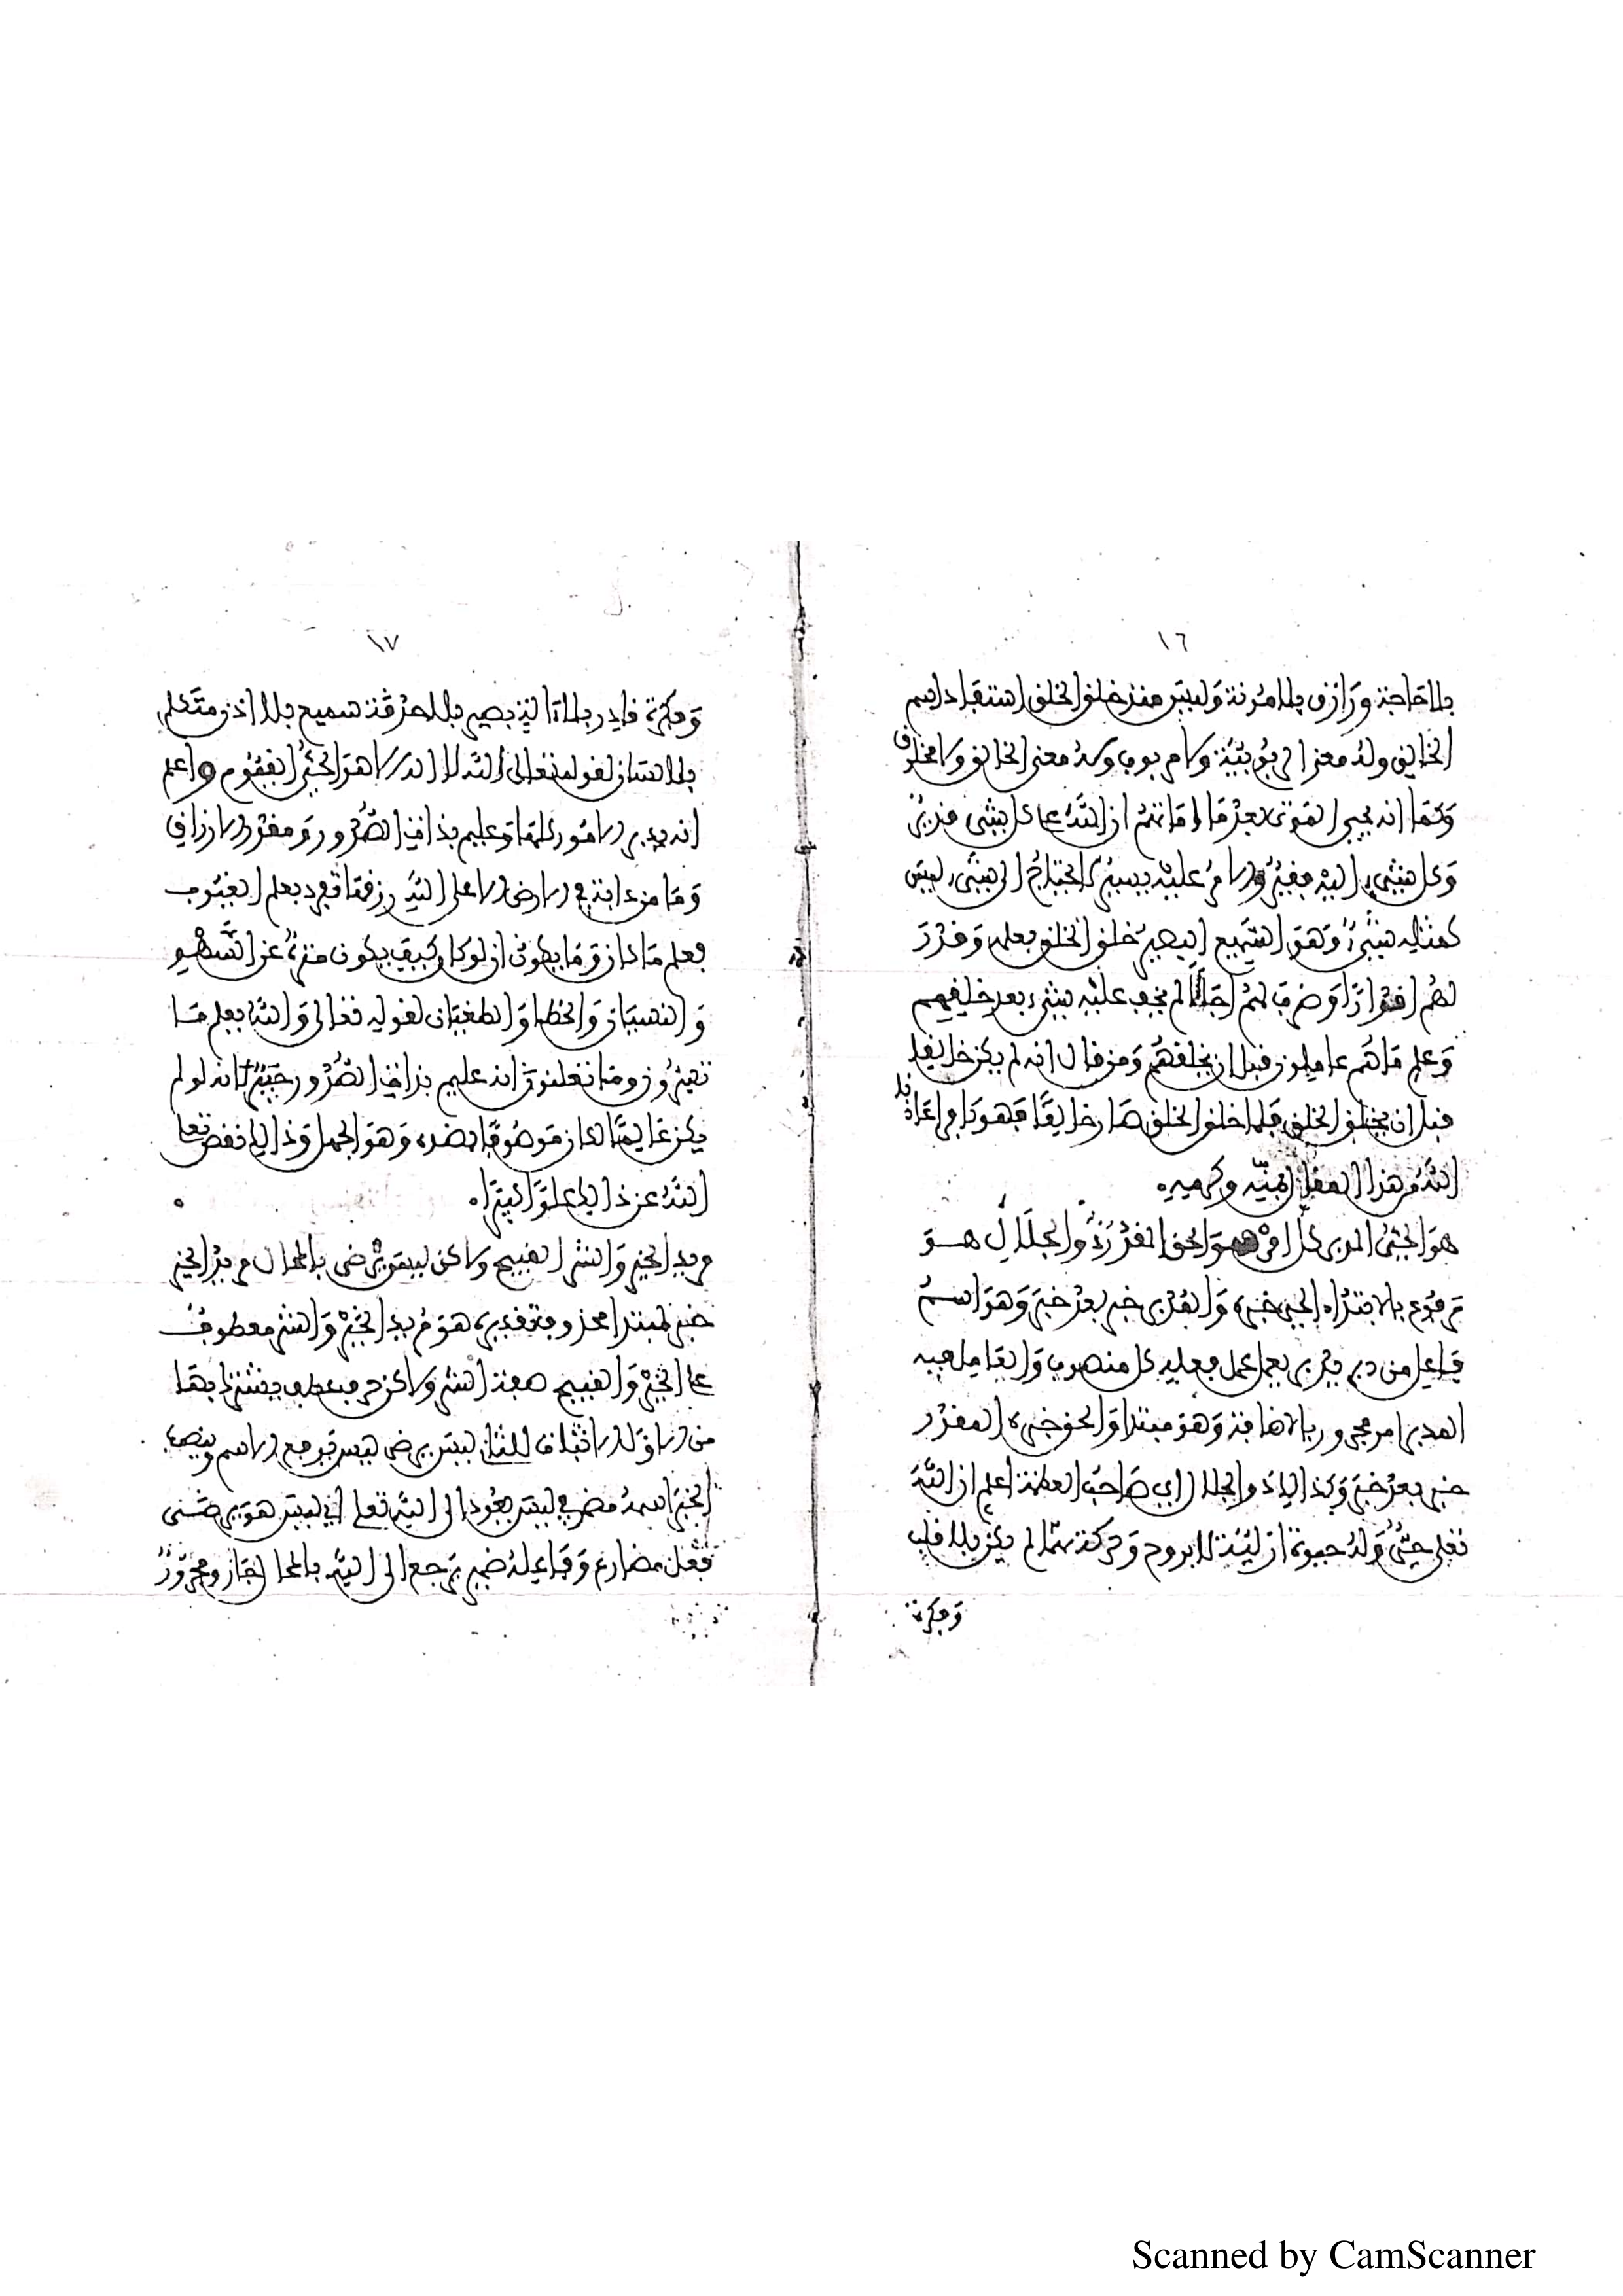 ١٦
بلا حاجة ورازق بلا مؤنة وليس منذ خلق الخلق استفاد اسم
الخالق وله معنى الربوبية ولا مربوب وله معنى الخالق ولا مخلوق
وكما انه يحيي الموتى بعد ما اماتهم ان الله على كل شيء قدير
وكل شيء اليه فقير والامر عليه يسير لا يحتاج الى شيء ليس
كمثله شيء وهو السميع البصير خلق الخلق بعلمه وقدر
لهم اقدارا وضرب لهم اجالا لم يخف عليه شيء بعد خلقهم
وعلم ما هم عاملون قبل ان يخلقهم ومن قال انه لم يكن خالقا
قبل ان يخلق الخلق فلما خلق الخلق صار خالقا فهو كافر اعاذنا
الله من هذا المقال بمنه وكرمه
هو الحي المدبر كل امر هو الحق المقدر ذو الجلال هو
مرفوع بالابتداء الحي خبره والمدبر خبر بعد خبر وهو اسم
فاعل من دبر يدبر يعمل عمل فعله كل منصوب والعامل فيه
المدبر امر مجرور بالاضافة وهو مبتدا والحق خبره المقدر
خبر بعد خبر وكذالك ذو الجلال اي صاحب العظمة اعلم ان الله
تعلى حي وله حيوة ازلية لا بروح وحركة متكلم بلا قلب
وفكرة
١٧
وفكرة قادر بلا الة بصير بلا حدقة سميع بلا اذن متكلم
بلا لسان لقوله تعالى الله لا اله الا هو الحي القيوم واعلم
انه يدبر الامور كلها وعليم بذات الصدور ومقدر الارزاق
وما من دابة في الارض الا على الله رزقها وقد يعلم الغيوب
يعلم ما كان وما يكون ان لو كان كيف يكون منزه عن السهو
والنسيان والخطا والطغيان لقوله تعالى والله يعلم ما
تسرون وما تعلنون انه عليم بذات الصدور انه لو لم
يكن عالما لكان موصوفا بضده وهو الجهل وذالك نقص تعالى
الله عن ذالك علوا كبيرا
مريد الخير والشر القبيح ولاكن ليس يرضى بالمحال مريد الخير
خبر لمبتدا محذوف تقديره هو مريد الخير والشر معطوف
على الخير والقبيح صفة الشر ولاكن حرف عطف
ليس يرضى ليس ترفع الاسم وينصب
الخبر اسمه مضمر في ليس يعود الى الله تعلى اي ليس هو يرضى
فعل مضارع وفاعله ضمير يرجع الى الله بالمحال جار ومجرور
Scanned by CamScanner